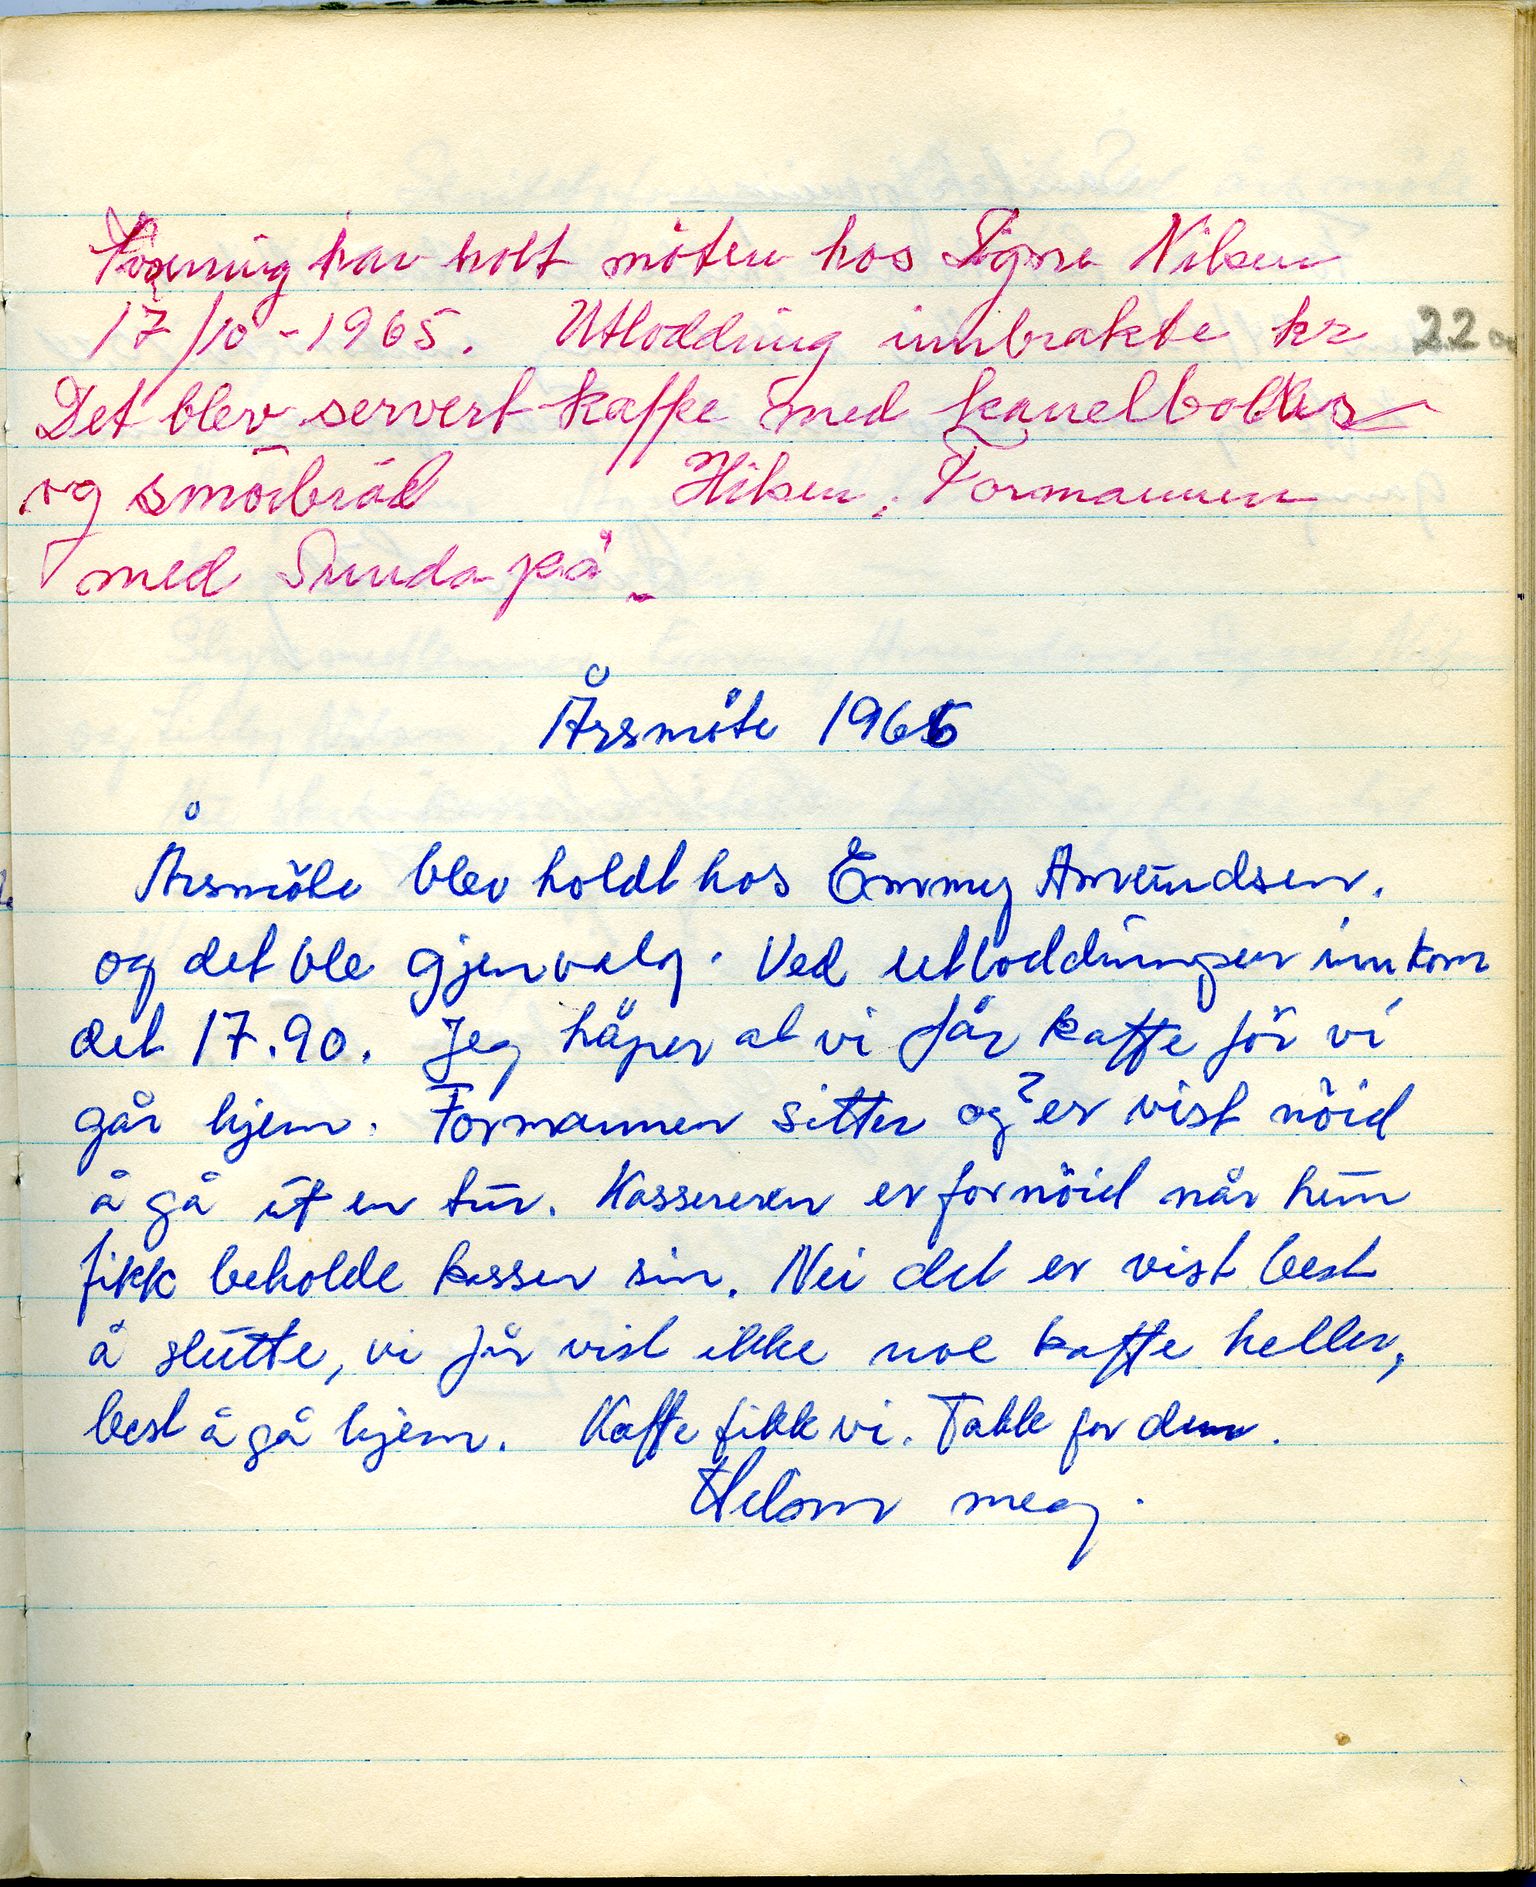 Forening har holt möten hos Signe Nilsen
17/10-1965. Utloddning innbrakte kr 22
Det blev servert kaffe med kanelboller
og smörbröd Hilsen, Formannen
med Snuda på.
Årsmöte 1966
Årsmöte blev holdt hos Emmy Amundsen.
og det ble gjenvalg. Ved utloddningen innkom
det 17.90. Jeg håper at vi får kaffe för vi
går hjem. Formannen sitter og? er vist nöid
å gå ut en tur. Kassereren er fornöid når hun
fikk beholde kassen sin. Nei det er vist best
å slutte, vi får vist ikke noe kaffe heller,
best å gå hjem. Kaffe fikk vi. Takk for den.
Helsnr meg.